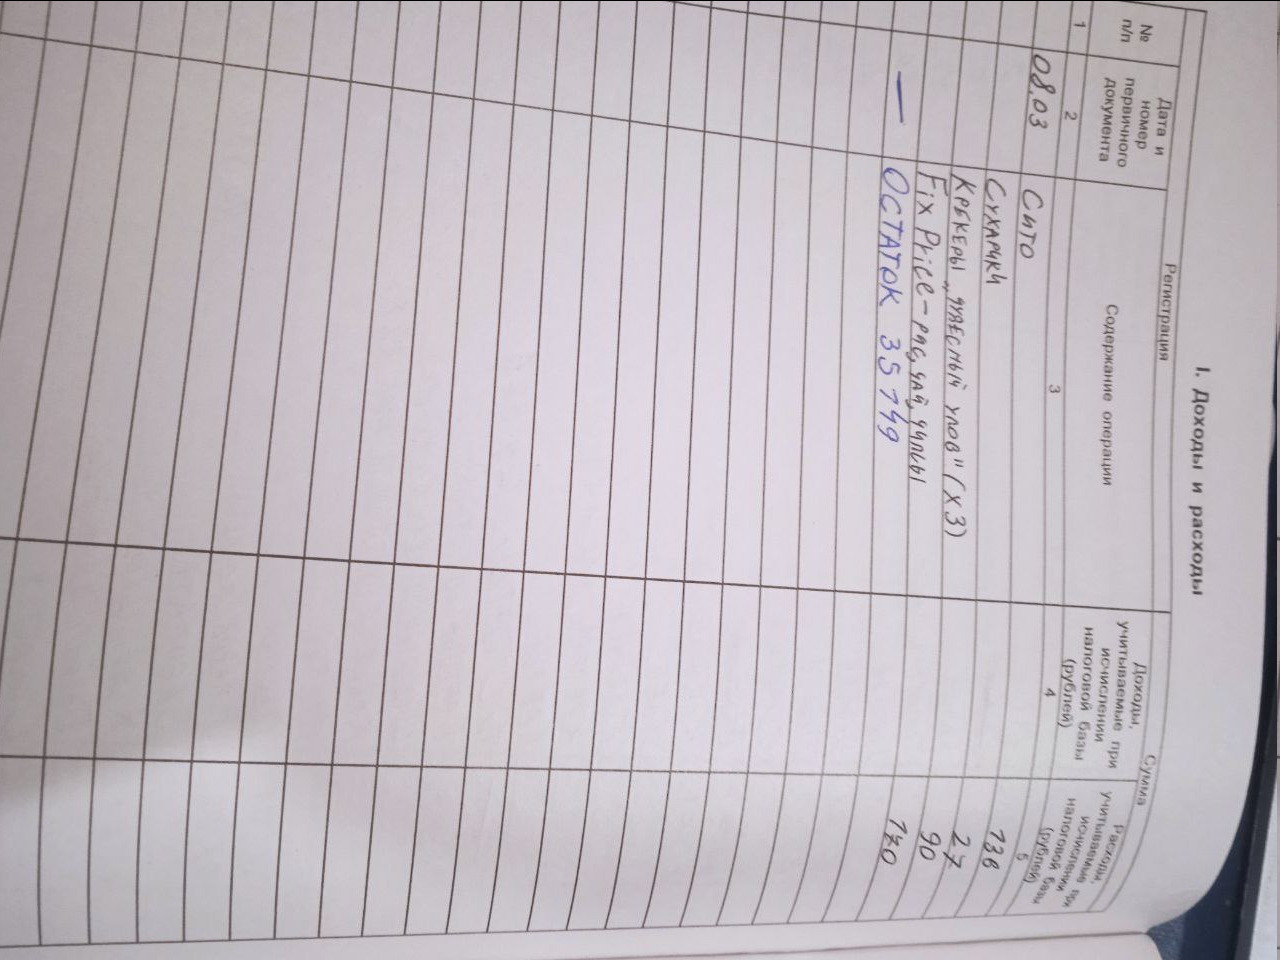 I. Доходы и расходы
Регистрация
Сумма
№ п/п
Дата и номер первичного документа
Содержание операции
Доходы, учитываемые при исчислении налоговой базы (рублей)
Расходы, учитываемые при исчислении налоговой базы (рублей)
1 2 3 4 5
08.03 Сито 136
Сухарики 27
Крекеры „чудесный улов" (х3) 90
Fix Price - рис, чай, чипсы 170
— ОСТАТОК 35749